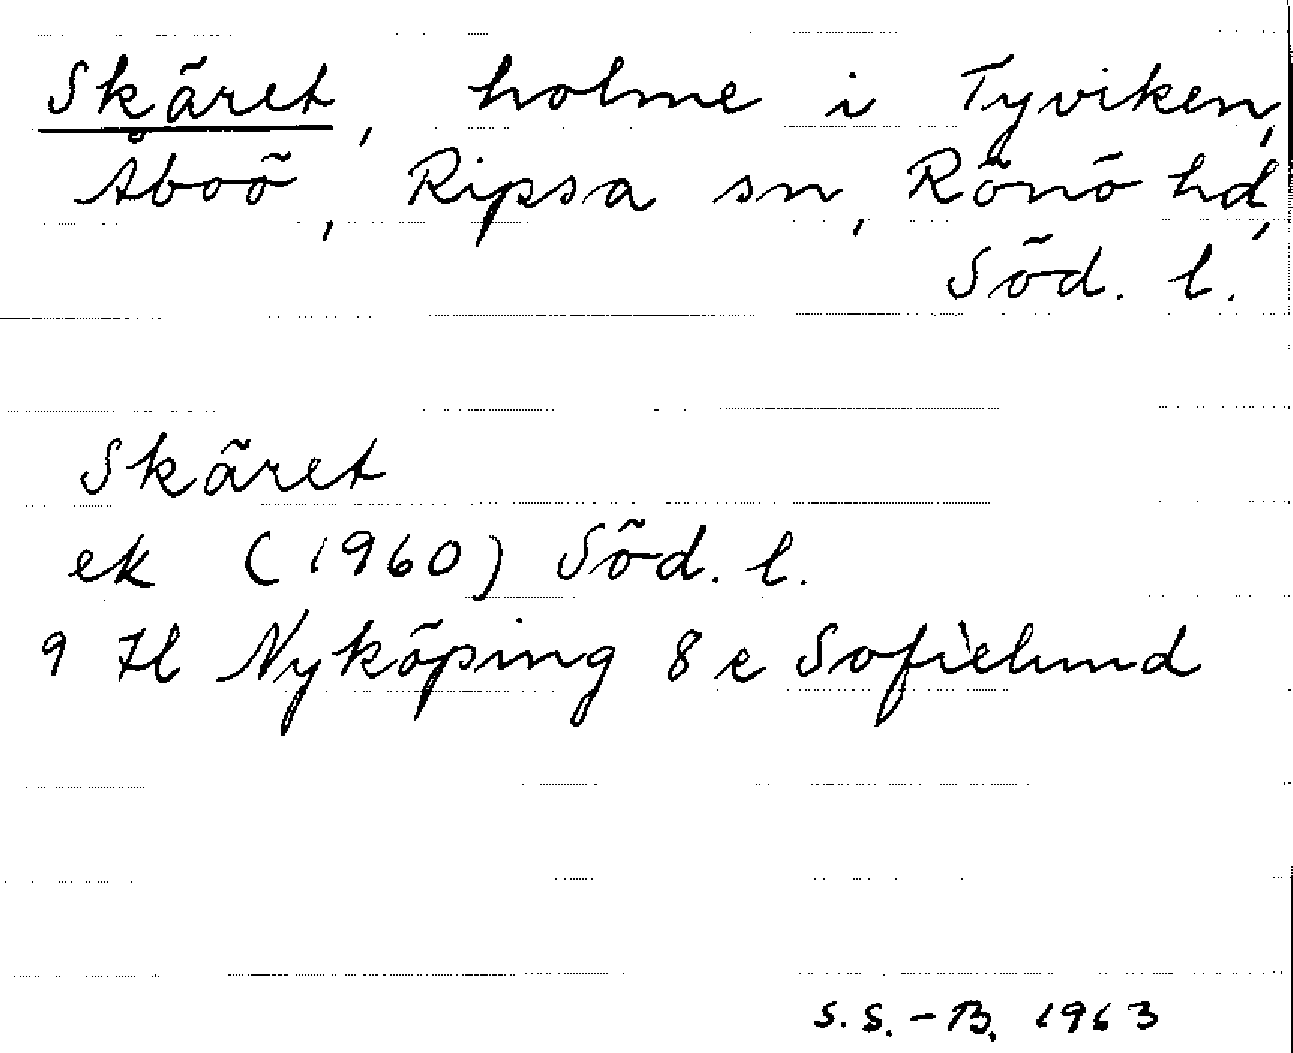 Skäret, holme i Tyviken,
Åboö, Ripsa sn, Rönö hd,
Söd. l.
Skäret
ek (1960) Söd. l.
9 Hl Nyköping 8 e Sofielund
S.S.-B. 1963